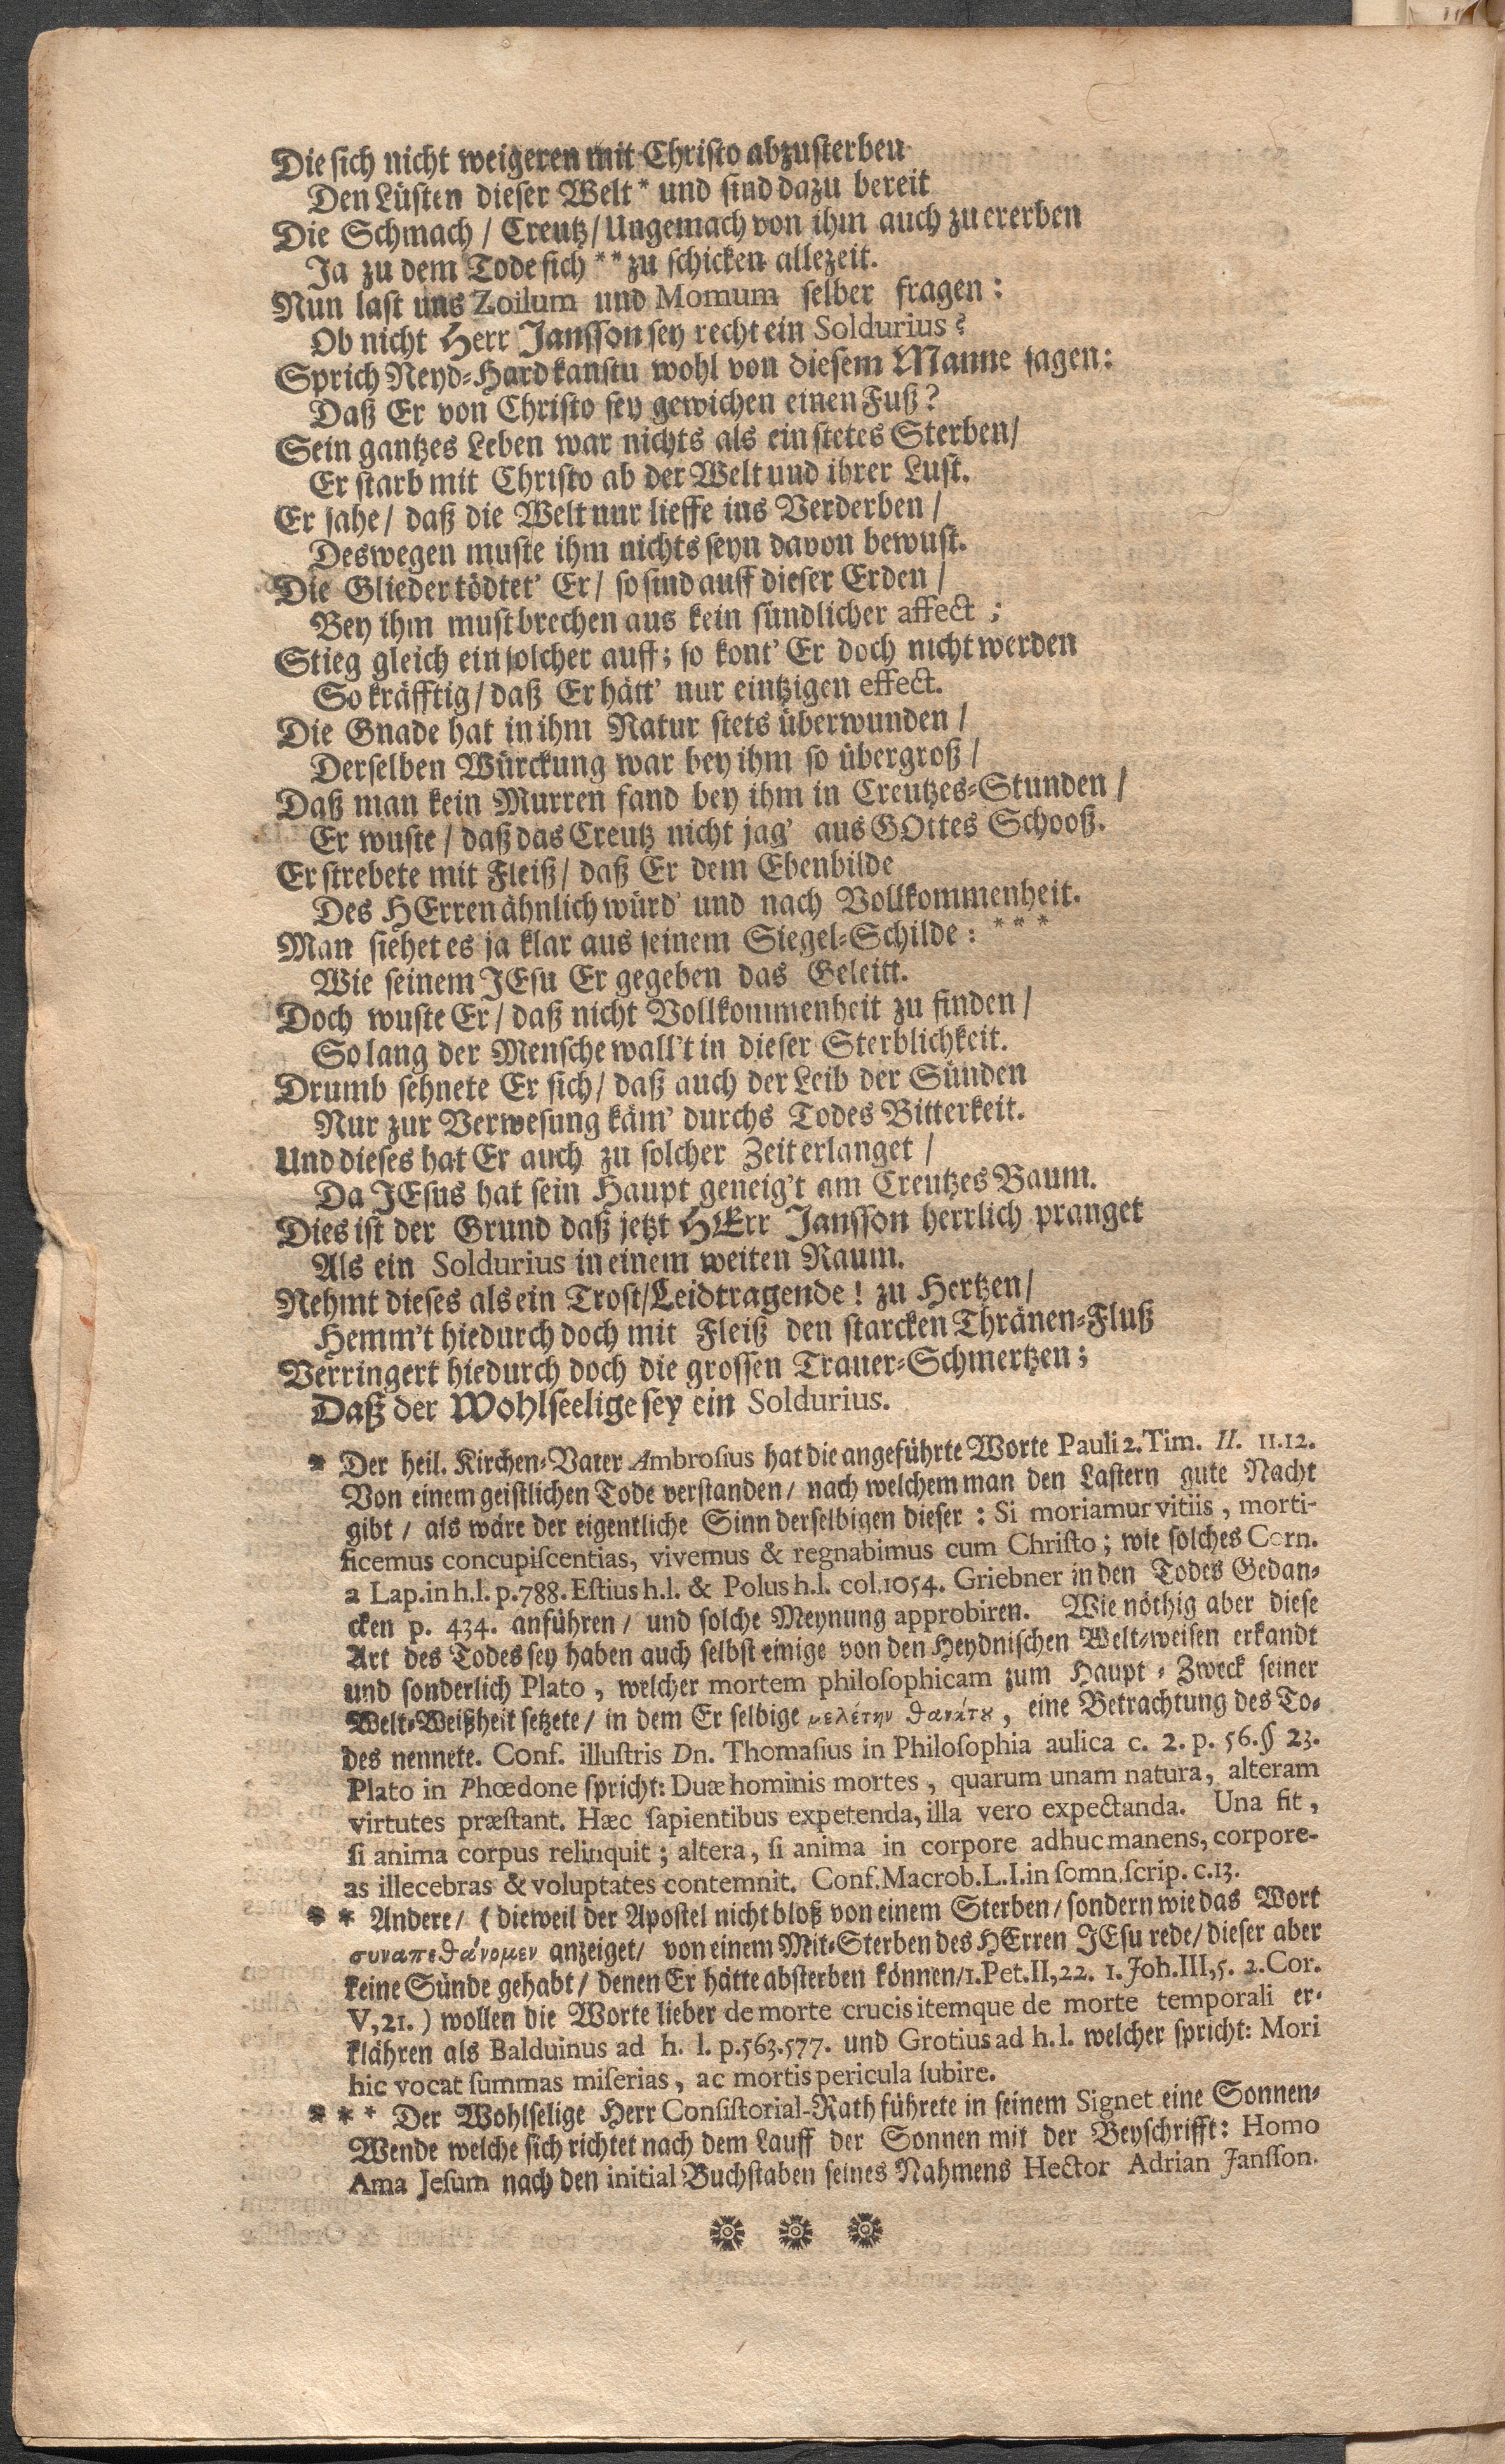 Die sich nicht weigeren mit Christo abzusterben
Den Lüsten dieser Welt * und sind dazu bereit
Die Schmach / Creutz / Ungemach von ihm auch zu ererben
Ja zu dem Tode sich ** zu schicken allezeit.
Nun last uns Zoilum und Momum selber fragen:
Ob nicht Herr Jansson sey recht ein Soldurius?
Sprich Neyd-Hard kanstu wohl von diesem Manne sagen:
Daß Er von Christo sey gewichen einen Fuß?
Sein gantzes Leben war nichts als ein stetes Sterben /
Er starb mit Christo ab der Welt und ihrer Lust.
Er sahe / daß die Welt nur lieffe ins Verderben /
Deswegen muste ihm nichts seyn davon bewust.
Die Glieder tödtet' Er / so sind auff dieser Erden /
Bey ihm must brechen aus kein sündlicher affect;
Stieg gleich ein solcher auff; so kont' Er doch nicht werden
So kräfftig / daß Er hätt' nur eintzigen effect.
Die Gnade hat in ihm Natur stets überwunden /
Derselben Würckung war bey ihm so übergroß /
Daß man kein Murren fand bey ihm in Creutzes-Stunden /
Er wuste / daß das Creutz nicht jag' aus GOttes Schooß.
Er strebete mit Fleiß / daß Er dem Ebenbilde
Des HErren ähnlich würd' und nach Vollkommenheit.
Man siehet es ja klar aus seinem Siegel-Schilde: ***
Wie seinem JEsu Er gegeben das Geleitt.
Doch wuste Er / daß nicht Vollkommenheit zu finden /
So lang der Mensche wall't in dieser Sterblichkeit.
Drumb sehnete Er sich / daß auch der Leib der Sünden
Nur zur Verwesung käm' durchs Todes Bitterkeit.
Und dieses hat Er auch zu solcher Zeit erlanget /
Da JEsus hat sein Haupt geneig't am Creutzes Baum.
Dies ist der Grund daß jetzt HErr Jansson herrlich pranget
Als ein Soldurius in einem weiten Raum.
Nehmt dieses als ein Trost / Leidtragende! zu Hertzen /
Hemm't hiedurch doch mit Fleiß den starcken Thränen-Fluß
Verringert hiedurch doch die grossen Trauer-Schmertzen;
Daß der Wohlseelige sey ein Soldurius.
* Der heil. Kirchen-Vater Ambrosius hat die angeführte Worte Pauli 2. Tim. II. 11.12.
Von einem geistlichen Tode verstanden / nach welchem man den Lastern gute Nacht
gibt / als wäre der eigentliche Sinn derselbigen dieser: Si moriamur vitiis, morti-
ficemus concupiscentias, vivemus & regnabimus cum Christo; wie solches Corn.
a Lap. in h.l. p.788. Estius h.l. & Polus h.l. col.1054. Griebner in den Todes Gedan-
cken p. 434. anführen / und solche Meynung approbiren. Wie nöthig aber diese
Art des Todes sey haben auch selbst einige von den Heydnischen Welt-weisen erkandt
und sonderlich Plato, welcher mortem philosophicam zum Haupt-Zweck seiner
Welt-Weißheit setzete / in dem Er selbige μελέτην θανάτȣ, eine Betrachtung des To-
des nennete. Conf. illustris Dn. Thomasius in Philosophia aulica c. 2. p. 56. § 23.
Plato in Phœdone spricht: Duæ hominis mortes, quarum unam natura, alteram
virtutes præstant. Hæc sapientibus expetenda, illa vero expectanda. Una fit,
si anima corpus relinquit; altera, si anima in corpore adhuc manens, corpore-
as illecebras & voluptates contemnit. Conf. Macrob. L. I. in somn. scrip. c.13.
** Andere / (dieweil der Apostel nicht bloß von einem Sterben / sondern wie das Wort
συναπεθάνομεν anzeiget / von einem Mit-Sterben des HErren JEsu rede / dieser aber
keine Sünde gehabt / denen Er hätte absterben können / 1. Pet. II, 22. 1. Joh. III, 5. 2. Cor.
V, 21.) wollen die Worte lieber de morte crucis itemque de morte temporali er-
klähren als Balduinus ad h. l. p.563.577. und Grotius ad h. l. welcher spricht: Mori
hic vocat summas miserias, ac mortis pericula subire.
*** Der Wohlselige Herr Consistorial-Rath führete in seinem Signet eine Sonnen-
Wende welche sich richtet nach dem Lauff der Sonnen mit der Beyschrifft: Homo
Ama Jesum nach den initial Buchstaben seines Nahmens Hector Adrian Jansson.